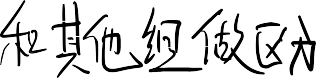 和其他组做区分